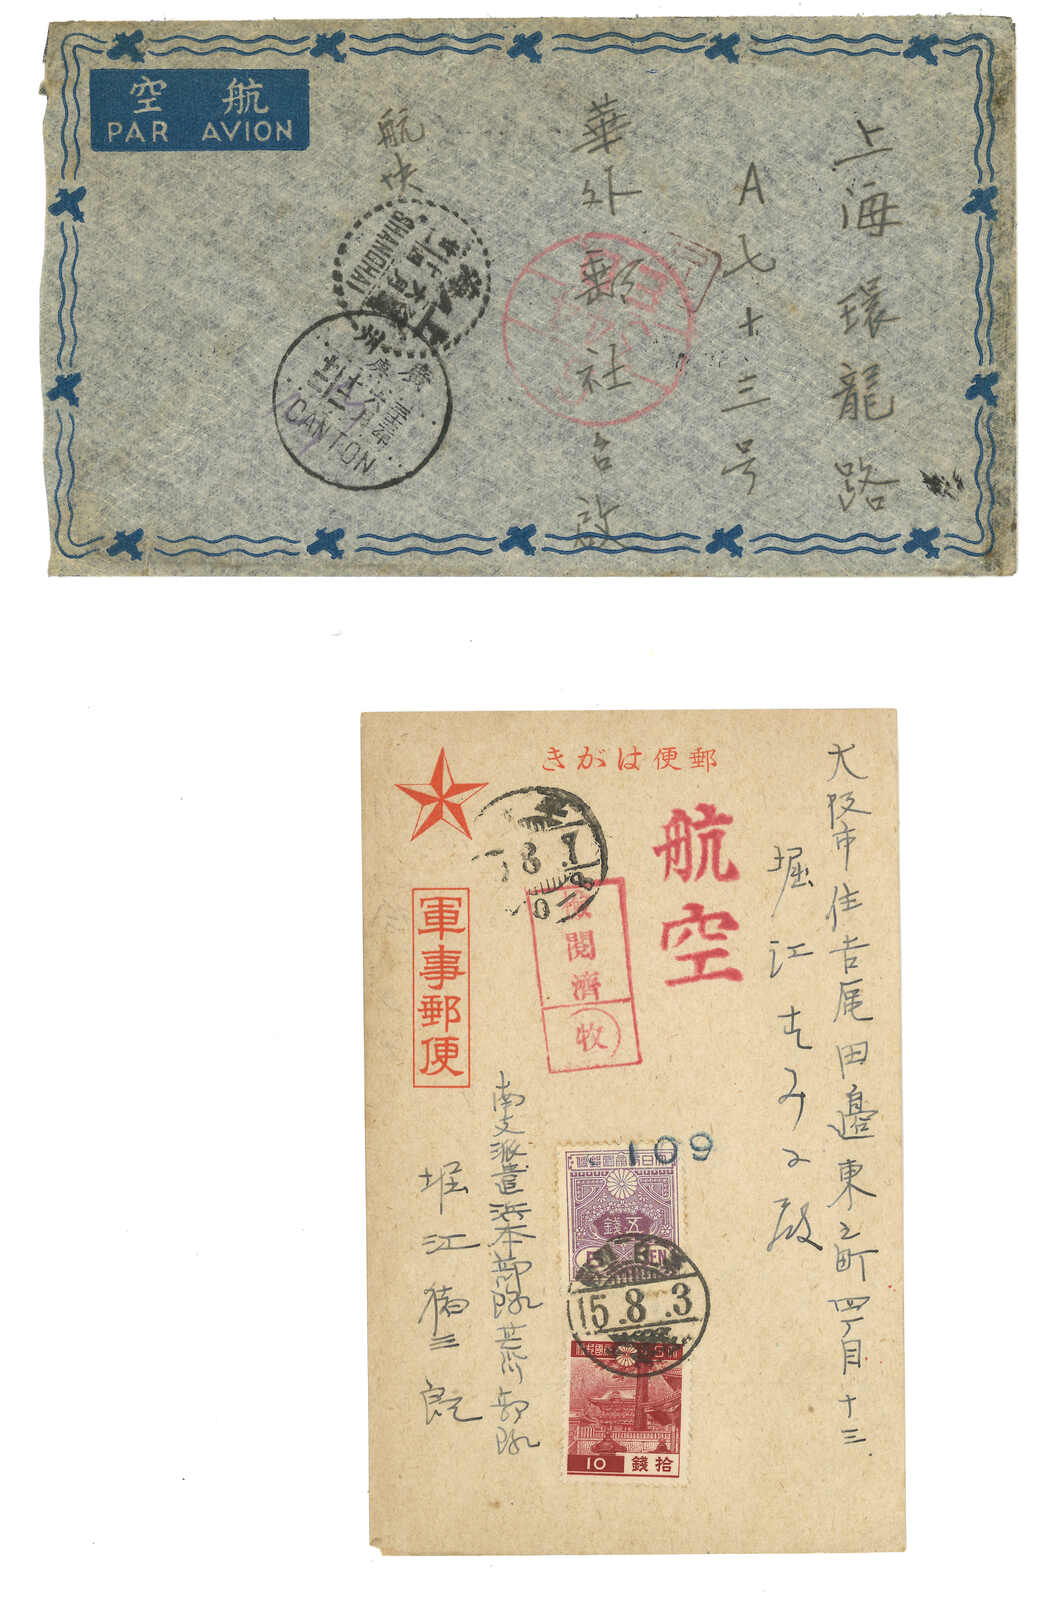 航空
PAR AVION
上海環龍路
A七十三号
華外郵社台啟
航快
SHANGHAI
上海
廣州
CANTON
郵便はがき
航空
軍事郵便
検閲濟
牧
大阪市住吉區田邊東之町四丁目十三
堀江すみ子殿
109
五錢
15.8.3
10
拾錢
南支派遣浜本部隊芸川部隊